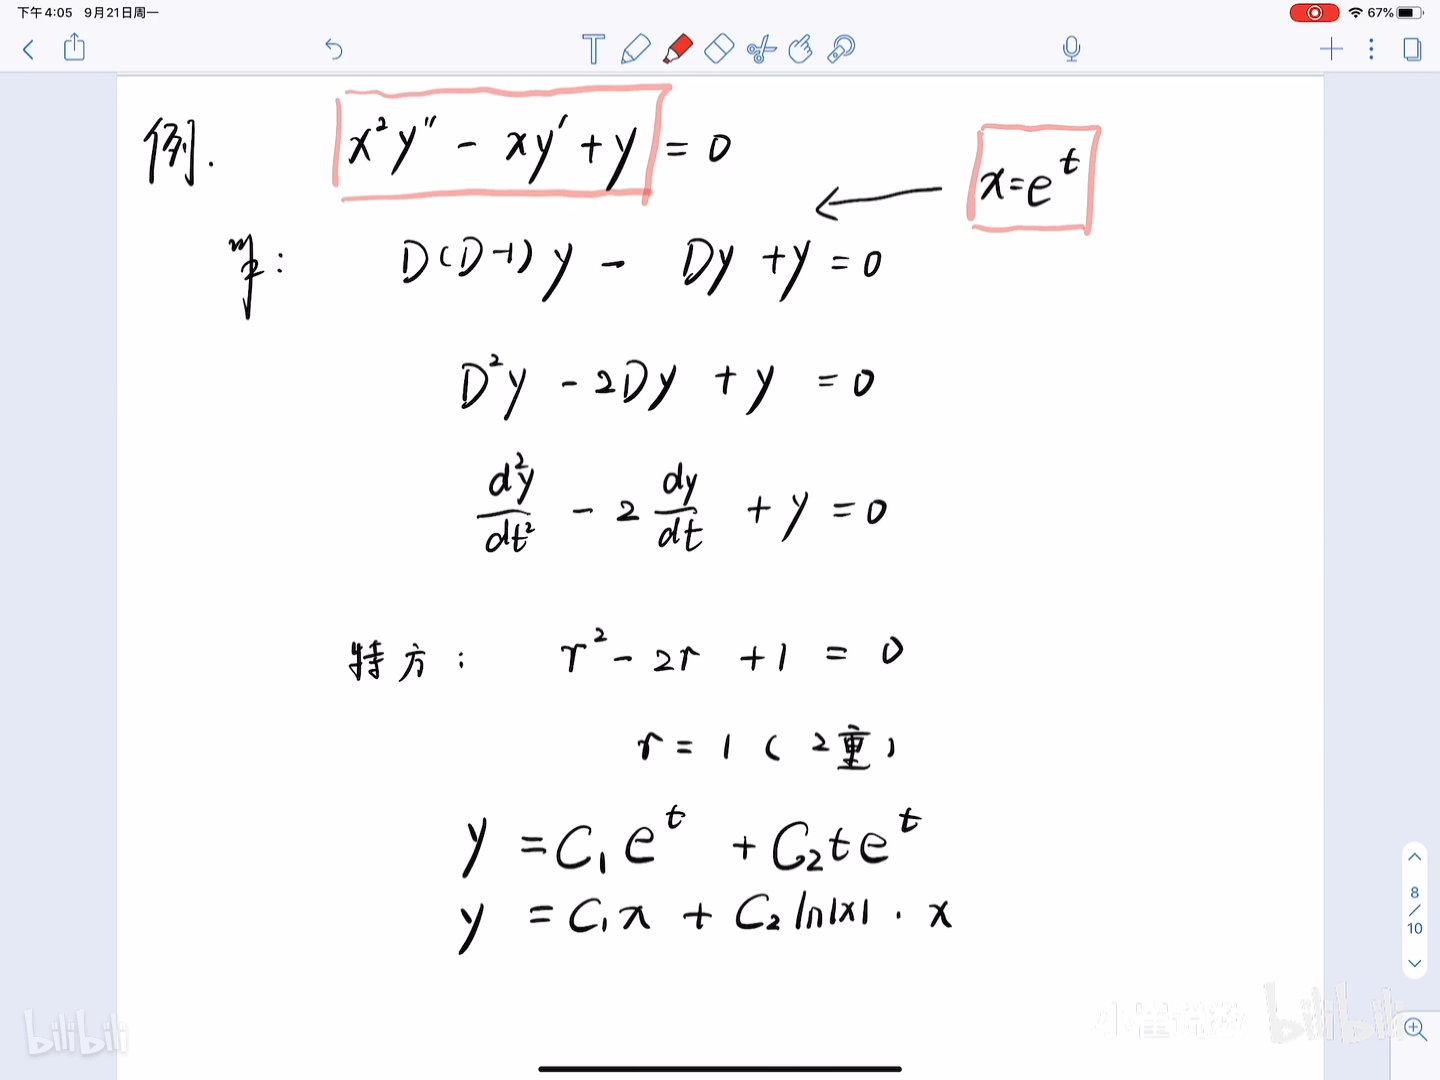 下午4:05 9月21日周一
67%
例. x²y″ - xy′ + y = 0
x=eᵗ
D(D-1)y - Dy + y = 0
D²y - 2Dy + y = 0
d²y/dt² - 2 dy/dt + y = 0
特方: r² - 2r + 1 = 0
r = 1 (2重)
y = C₁eᵗ + C₂teᵗ
y = C₁x + C₂ln|x| · x
8/10
bilibili
小崔说数 bilibili